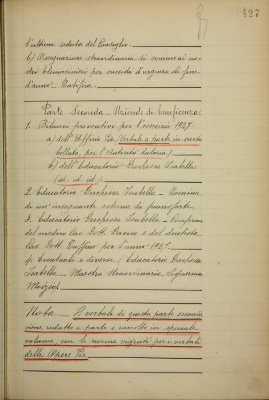 427
l'ultima seduta del Consiglio.
b) Assegnazione straordinaria di
elemosinieri per sussidi d'urgenza di fine
d'anno - Ratifica.
Parte Seconda - Aziende di beneficenza:
1. Bilanci preventivi per l'esercizio 1927:
a) dell'Uffizio Pio, (verbale a parte in carta
bollata, per l'autorità tutoria)
b) dell'Educatorio Duchessa Isabella
(id. id. id.)
2. Educatorio Duchessa Isabella - Nomina
di un'insegnante esterna di pianoforte.
3. Educatorio Duchessa Isabella - Conferma
del medico Cav. Dott. e del dentista
Cav. Dott. Ruffino per l'anno 1927.
4. Eventuali e diverse (Educatorio Duchessa
Isabella - Maestra straordinaria Signorina
Nota - Il verbale di questa parte seconda
viene redatto a parte e raccolto in speciale
volume, con le norme vigenti per i verbali
delle Opere Pie.